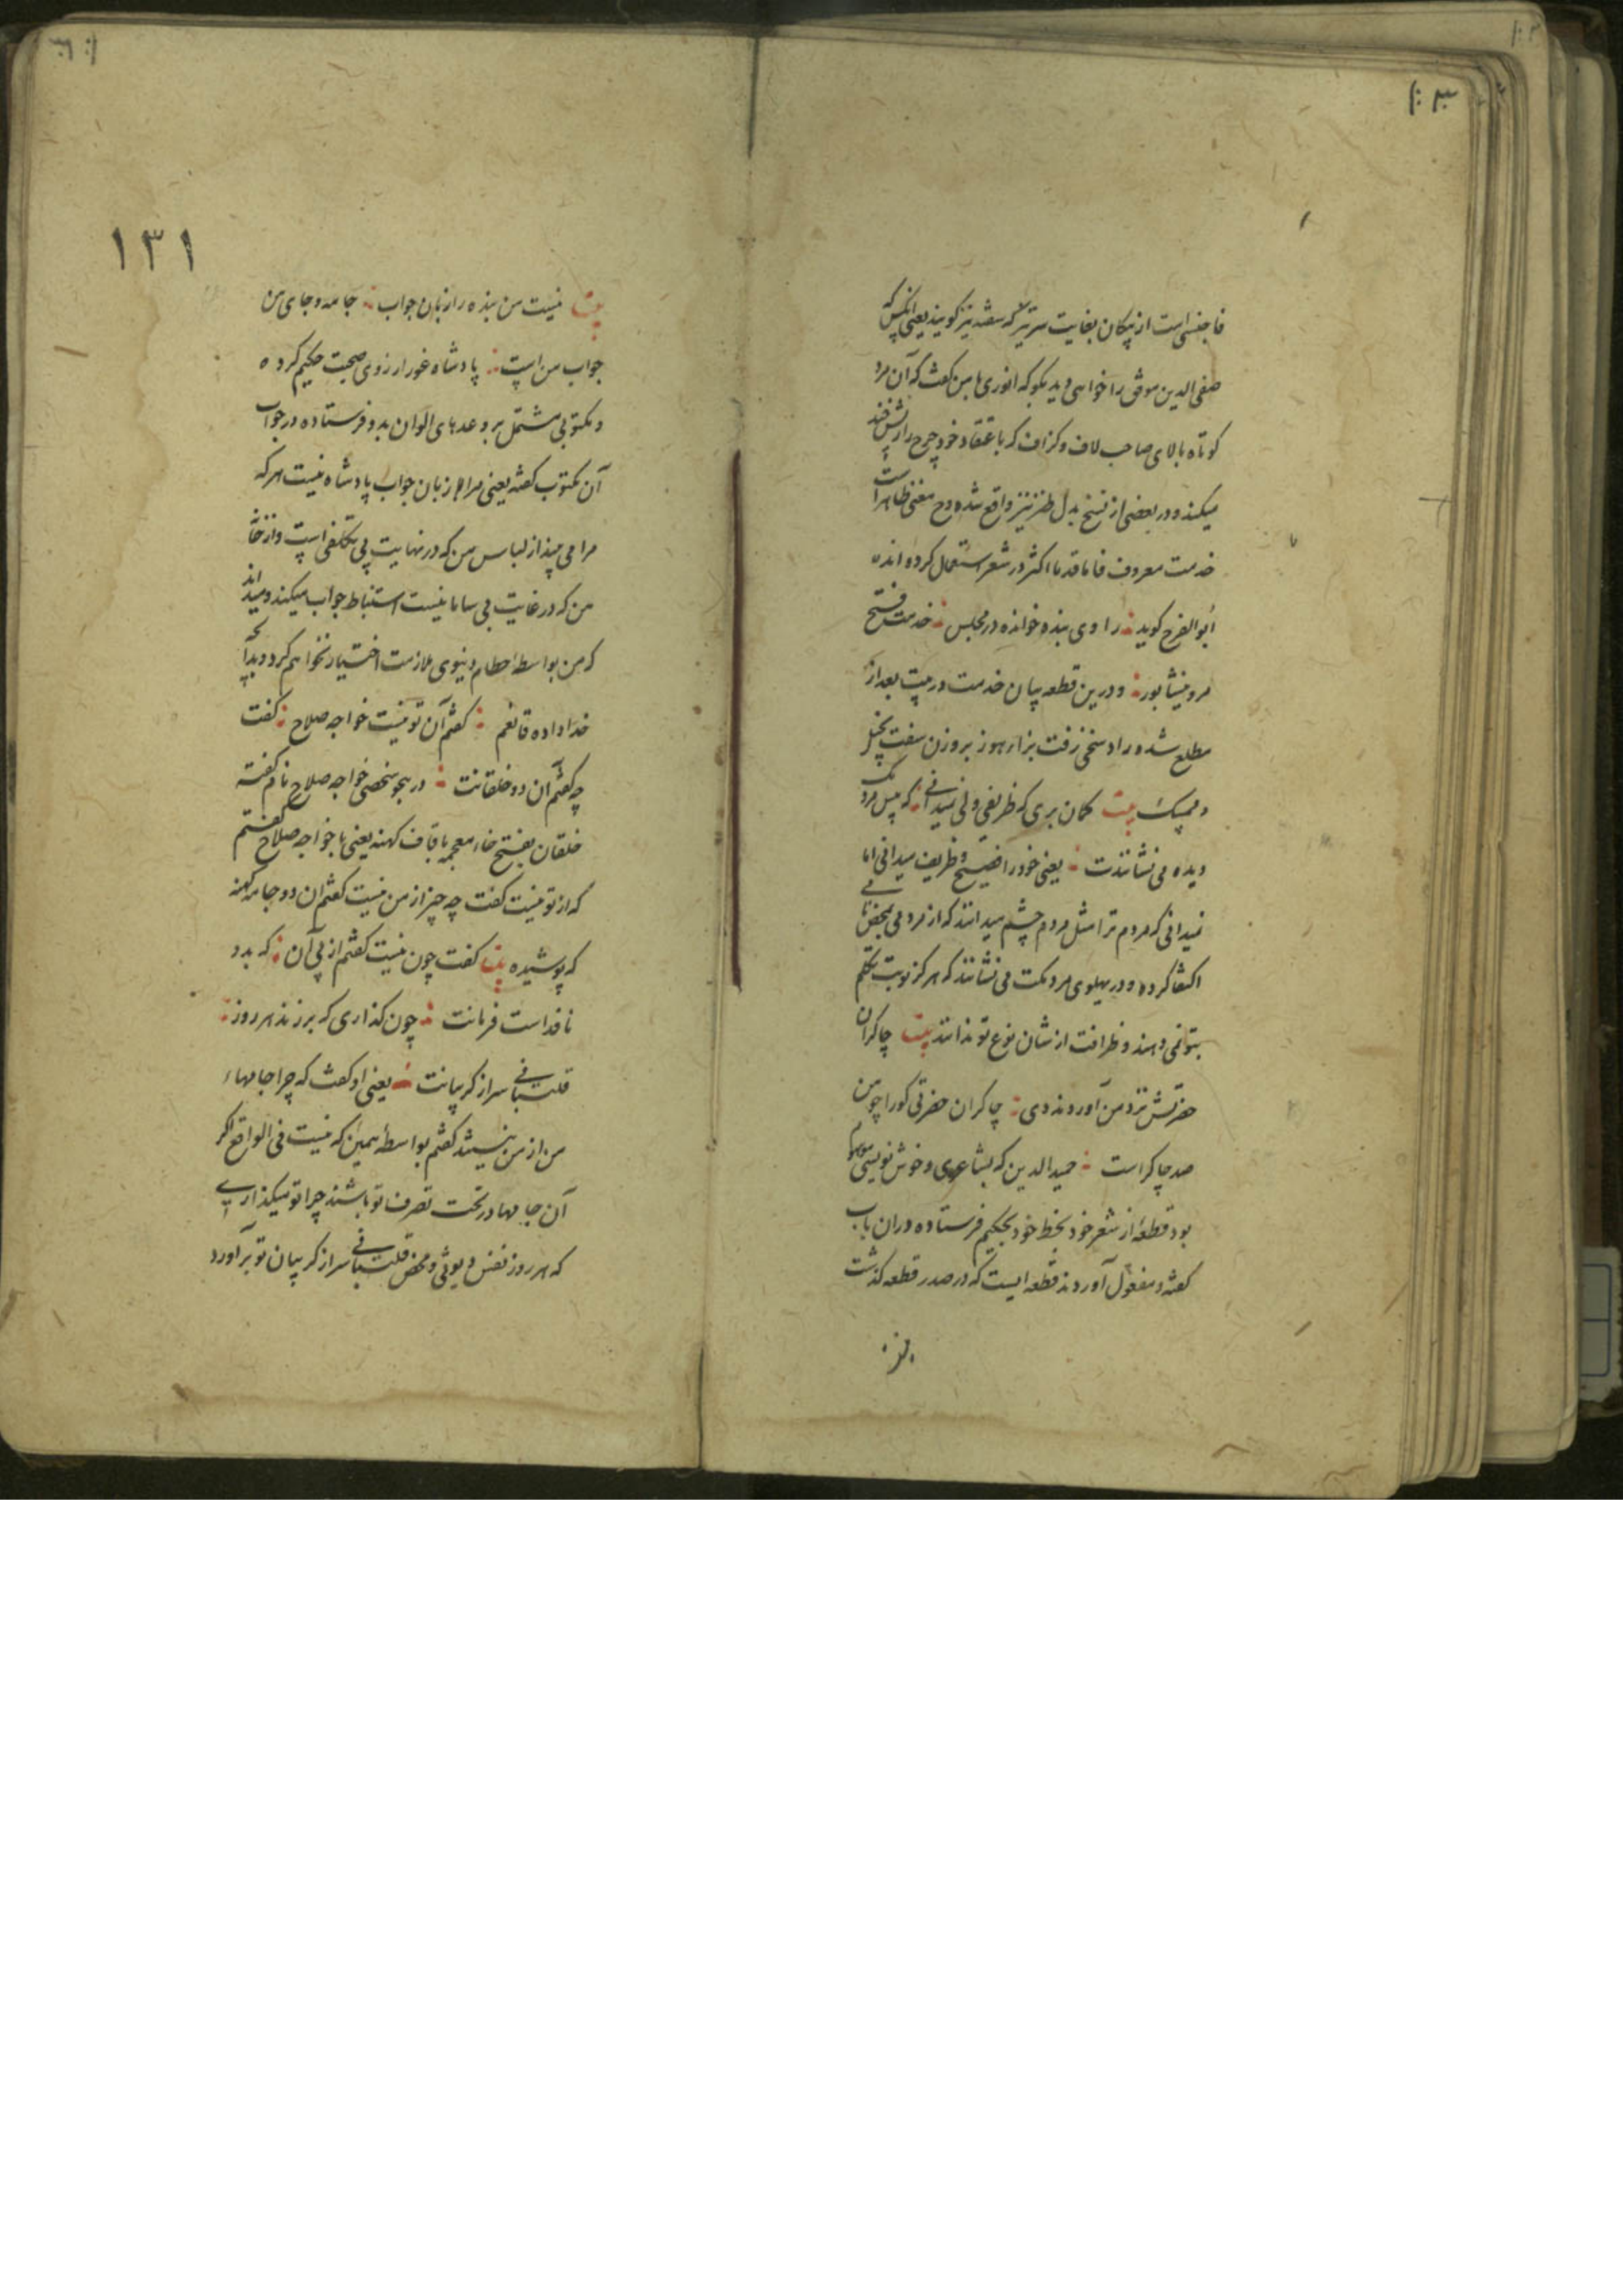 فا جنسی است از پیکان بغایت سرتیز که سفته نیز گویند یعنی آنکس که
صفی الدین موفق را خواهی دید بگو که انوری با من گفت که آن مرد
کوتاه بالای صاحب لاف و گزاف که باعتقاد خود چرخ را ریش خند
میکند و در بعضی از نسخ بدل طنز نیز واقع شده و معنی ظاهر است
خدمت معروف فاما قدما اکثر در شعر استعمال کرده اند
ابوالفرج گوید راوی بنده خوانده در مجلس خدمت فتح
مرو نیشابور و درین قطعه بیان خدمت در بیت بعد از
مطلع شده راد سخی زفت بزاء هوز بروزن سفت بخیل
و ممسک بیت گمان بری که ظریفی ولی نمیدانی که مردمک
دیده می نشانندت یعنی خود را فصیح و ظریف میدانی اما
نمیدانی که مردم ترا مثل مردم چشم میدانند که از مردمی بمحض نامی
اکتفا کرده و در پهلوی مردمت می نشانند که هرگز نوبت تکلم
بتو نمی دهند و ظرافت از شان نوع تو ندانند بیت چاکران
حضرتش نزد من آوردند دی چاکران حضرتی کو را چو من
صد چاکر است حمید الدین که بشاعری و خوش نویسی موسوم
بود قطعهٔ از شعر خود بخط خود بحکیم فرستاده در آن باب
گفته و مفعول آوردند قطعه ایست که در صدر قطعه گذشت
۱۳۱
بیت نیست من بنده را زبان جواب جامه و جای من
جواب من است پادشاه غور ارزوی صحبت حکیم کرده
و مکتوبی مشتمل بر وعدهای الوان بدو فرستاده در جواب
آن مکتوب گفته یعنی مرا زبان جواب پادشاه نیست هر که
مرا می بیند از لباس من که در نهایت بی تکلفی است و از خانه
من که در غایت بی سامانیست استنباط جواب میکند و میداند
که من بواسطه حطام دنیوی ملازمت اختیار نخواهم کرد و بدآنچه
خدا داده قانعم گفتم آن تو نیست خواجه صلاح گفت
چه گفتم آن دو خلقانت در هجو شخصی خواجه صلاح نام گفته
خلقان بفتح خاء معجمه با قاف کهنه یعنی با خواجه صلاح گفتم
که از تو نیست گفت چه چیز از من نیست گفتم آن دو جامه کهنه
که پوشیده بیت گفت چون نیست گفتم از پی آن که بدو
نافذ است فرمانت چون گذاری که برزند هر روز
قلتبانی سر از گریبانت یعنی او گفت که چرا جامهاء
من از من نیستند گفتم بواسطهٔ همین که نیست فی الواقع اگر
آن جامها در تحت تصرف تو باشند چرا تو میگذاری
که هر روز نفس دیوثی و محض قلتبانی سر از گریبان تو برآورد